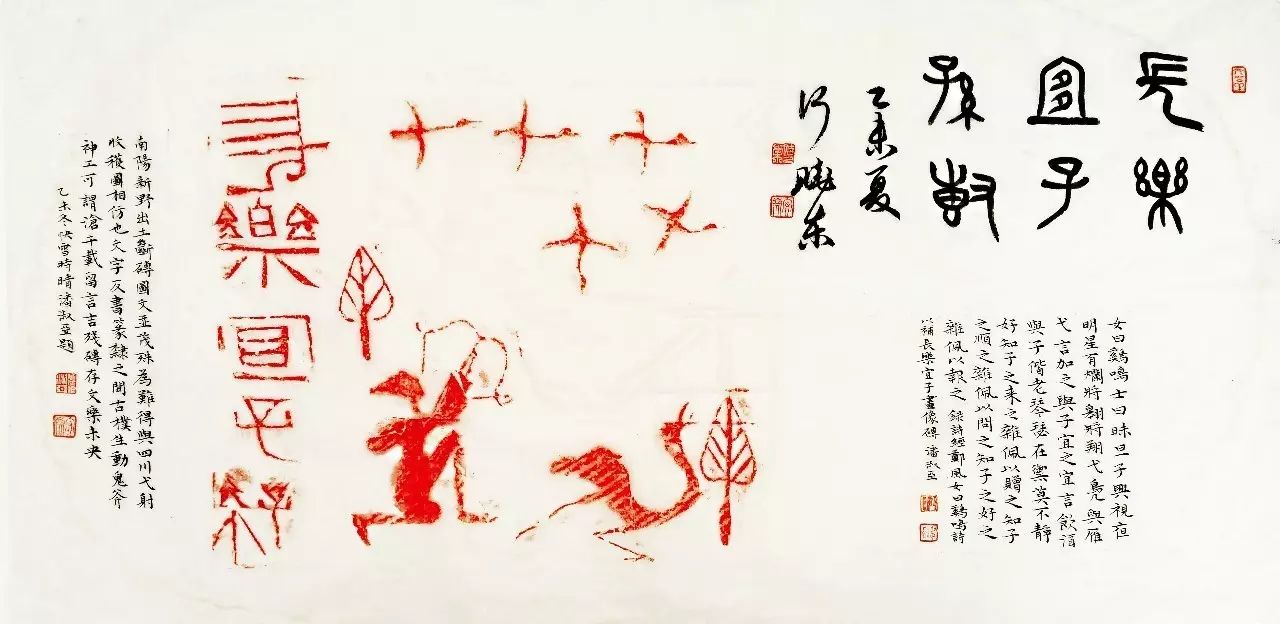 長樂
宜子
孫
乙未夏
曉東
女曰鷄鳴士曰昧旦子興視夜
明星有爛將翱將翔弋鳧與雁
弋言加之與子宜之宜言飲酒
與子偕老琴瑟在御莫不靜
好知子之來之雜佩以贈之知子
之順之雜佩以問之知子之好之
雜佩以報之 錄詩經鄭風女曰鷄鳴詩
以補長樂宜子畫像磚 潘淑亞
長樂宜子孫
南陽新野出土斷磚圖文並茂殊為難得與四川弋射
收穫圖相仿也文字反書篆隸之間古樸生動鬼斧
神工可謂滄千載留言言殘磚存文樂未央
乙未冬快雪時晴潘淑亞題